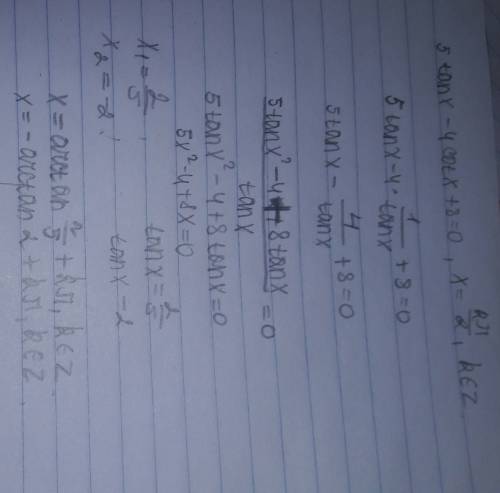 5 tanx - 4 cotx + 8 = 0 , x = kπ/2 , k∈Z
5 tanx - 4 · 1/tanx + 8 = 0
5 tanx - 4/tanx + 8 = 0
5 tanx² - 4 + 8 tanx / tanx = 0
5 tanx² - 4 + 8 tanx = 0
5x² - 4 + 8x = 0
x₁ = 2/5 , tanx = 2/5
x₂ = -2 , tanx - 2
x = arctan 2/5 + kπ, k∈Z
x = - arctan 2 + kπ, k∈Z